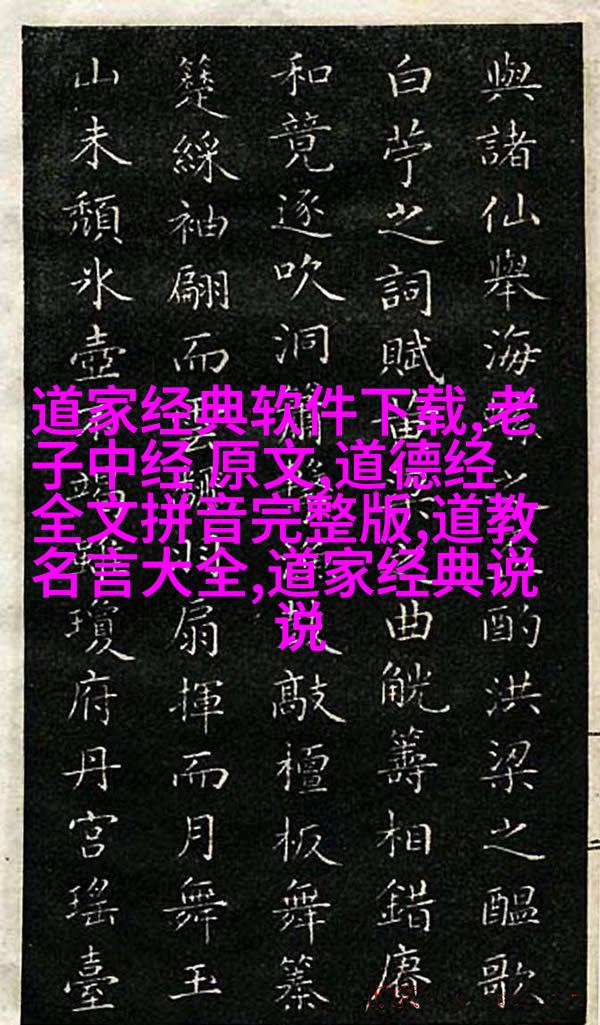 與諸仙舉海之酌洪梁之醞歌
白苧之詞賦之曲觥籌相錯賡
和竟逐吹洞敲檀板舞
綵袖翩而扇揮而月舞玉
山未頹氷壺瓊府丹宮瑤臺
道家经典软件下载,老
子中经 原文,道德经
全文拼音完整版,道教
名言大全,道家经典说
说